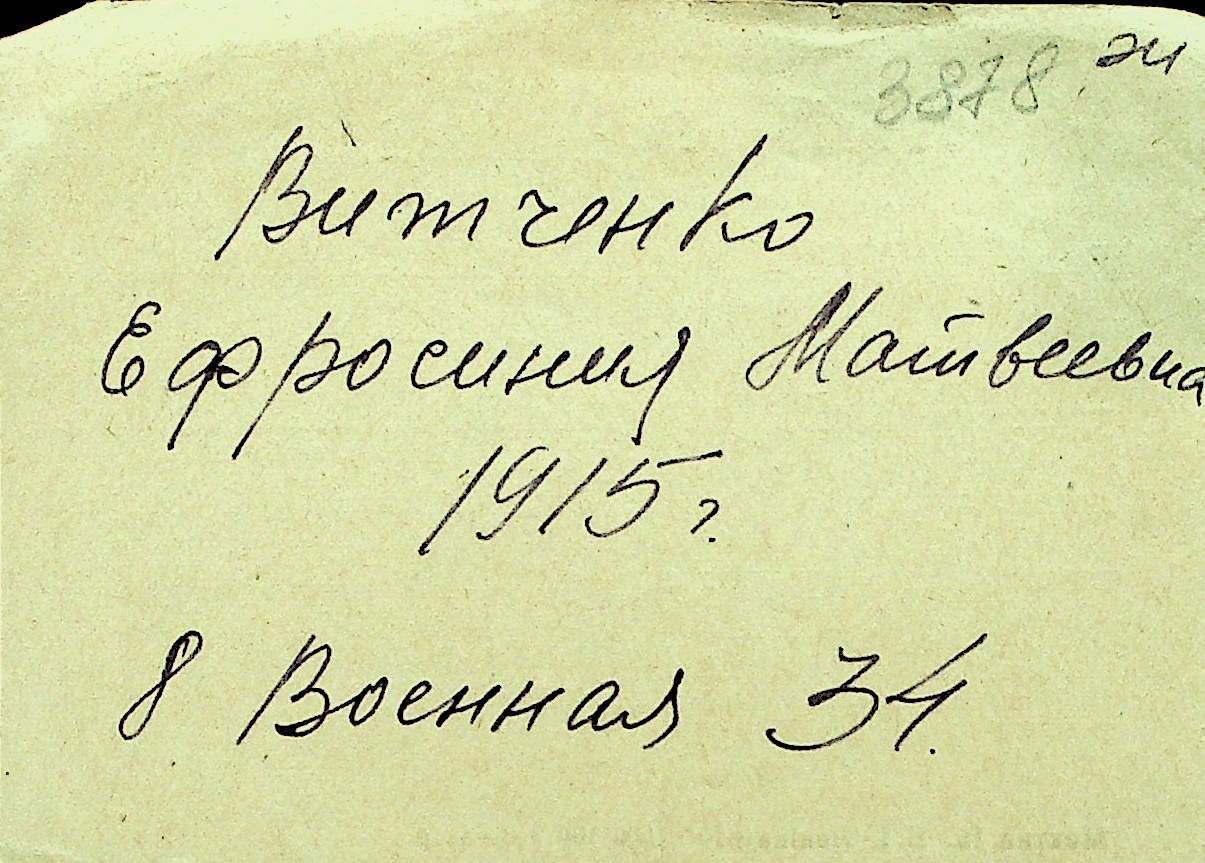 3878 эи
Витченко
Ефросиния Матвеевна
1915 г.
8 Военная 34.